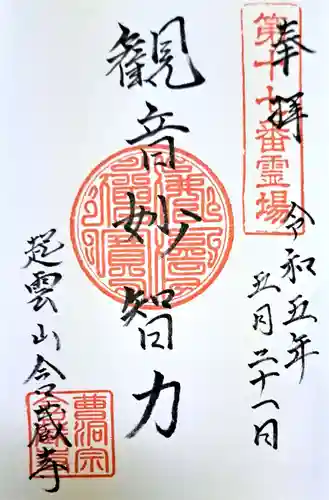 奉拝
第十七番霊場
令和五年
五月二十一日
観音妙智力
起雲山含蔵寺
曹洞宗